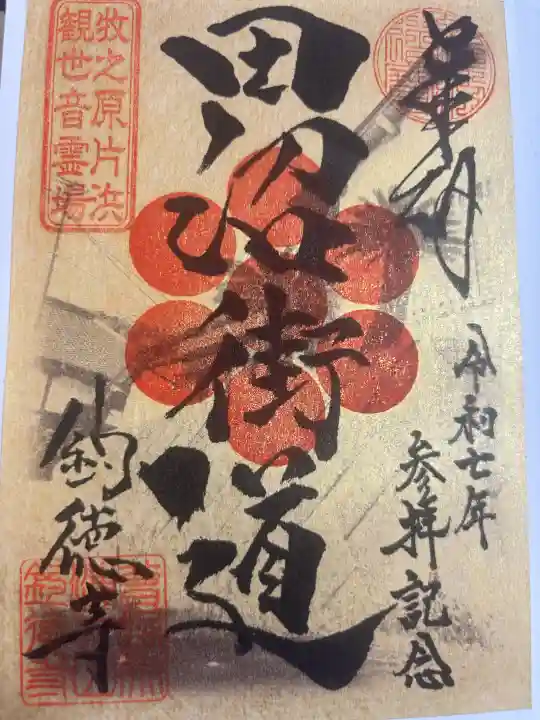 奉拝
令和七年
参拝記念
田沼街道
釣徳寺
牧之原片浜
観世音霊場